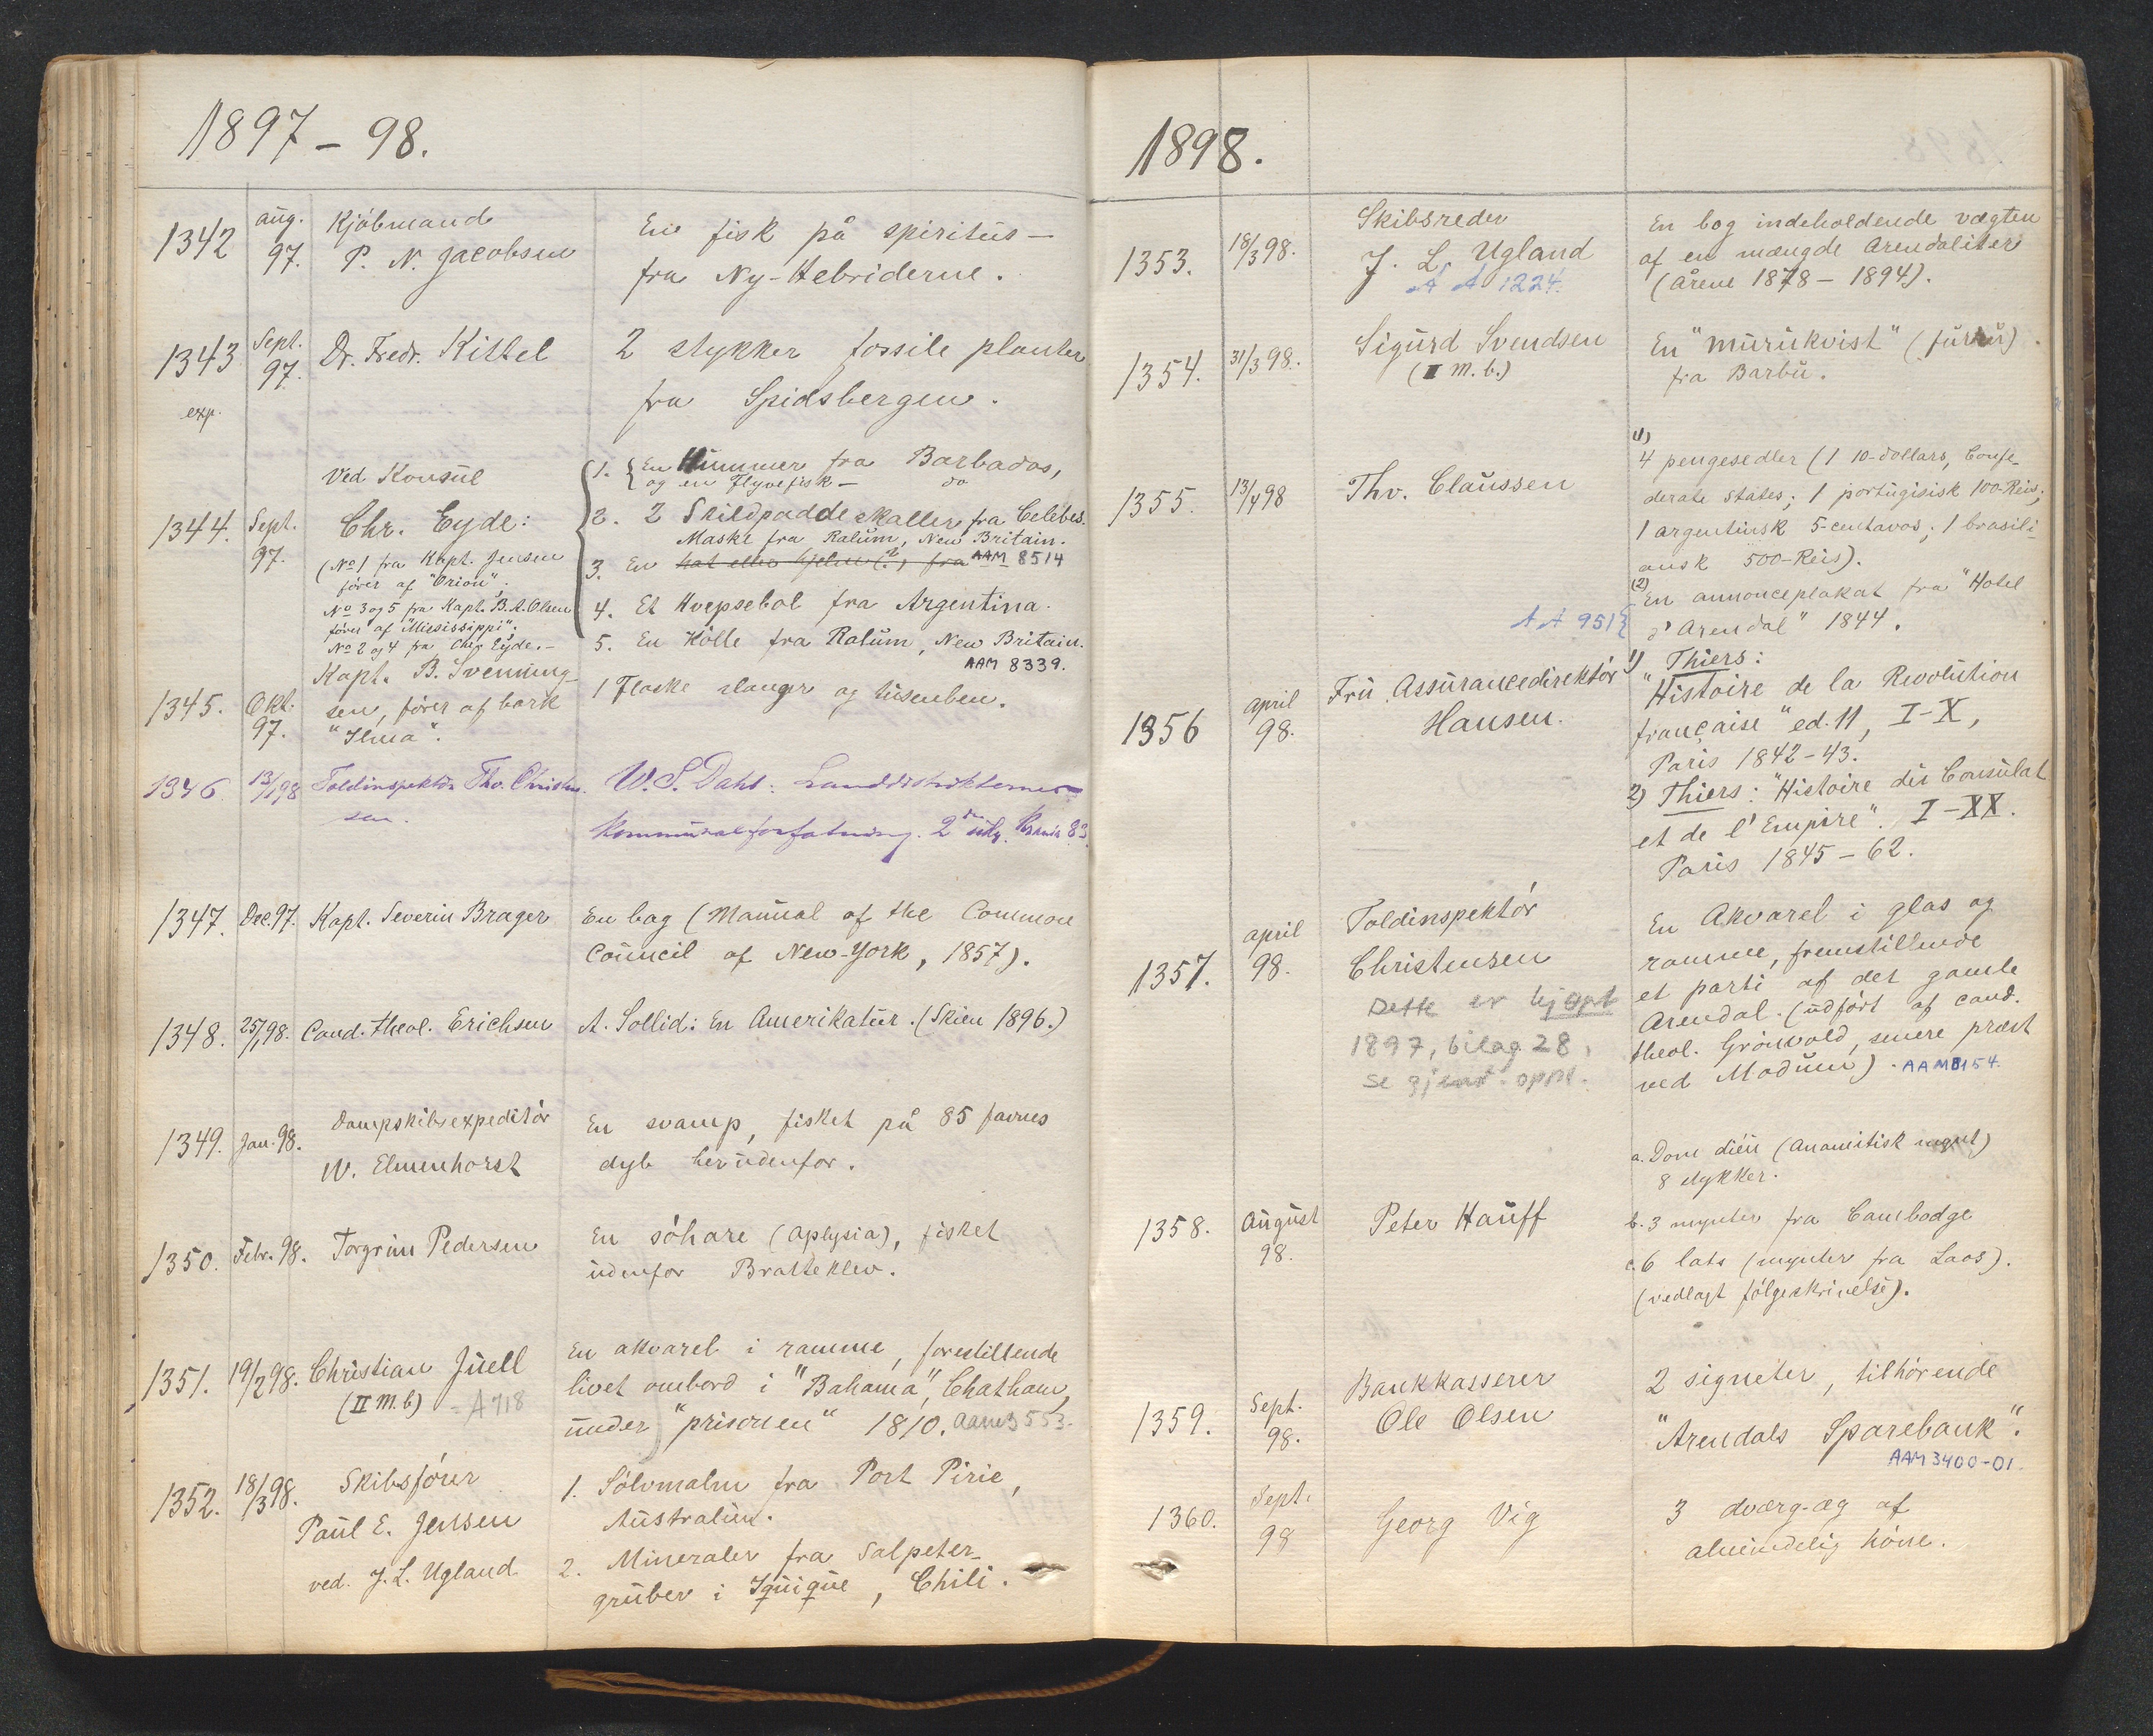 1897-98.
1342
aug.
97.
Kjöbmand
P. N. Jacobsen
En fisk på spiritus —
fra Ny-Hebriderne.
1343
exp.
Sept.
97.
Dr. Fredr. Kittel
2 stykker fossile planter
fra Spidsbergen.
1344.
Sept.
97.
Ved Konsul
Chr. Eyde:
(No 1 fra Kapt. Jensen
förer af "Orion".
No 3 og 5 fra Kapt. B. A. Olsen
förer af "Missisippi".
No 2 og 4 fra Chr. Eyde. —
1. En Hummer fra Barbados,
og en Flyvefisk — do
2. 2 Skildpadde skaller fra Celebes.
Maske fra Ralum, New Britain.
3. En hat eller hjelm (?) fra AAM 8514
4. Et Hvepsebol fra Argentina.
5. En Kölle fra Ralum, New Britain.
AAM 8339.
1345.
Okt.
97.
Kapt. B. Svenning-
sen, förer af bark
"Ilma".
1 Flaske slanger og tusenben.
1346
13/1 98
Toldinspektör Thv. Christen-
sen.
W. S. Dahl: Landdistrikternes
Kommunalforfatning. 2den udg. Krania 83.
1347.
Dec. 97.
Kapt. Severin Brager
En bog (Manual of the Common
Council of New-York, 1857).
1348.
25/1 98.
Cand. theol. Erichsen
A. Sollid: En Amerikatur. (Skien 1896.)
1349.
Jan. 98.
Dampskibsexpeditör
W. Elmenhorst
En svamp, fisket på 85 favnes
dyb herudenfor.
1350.
Febr. 98.
Torgrim Pedersen
En söhare (Aplysia), fisket
udenfor Bratteklev.
1351.
19/2 98.
Christian Juell
(II m. b) = A 718
En akvarel i ramme, forestillende
livet ombord i "Bahama", Chatham,
under "prisonen" 1810. AAM 3553.
1352.
18/3 98.
Skibsförer
Paul E. Jensen
ved. J. L. Ugland
1. Sölvmalm fra Port Pirie,
Australien.
2. Mineraler fra Salpeter-
gruber i Iquique, Chili.
1898.
1353.
18/3 98.
Skibsreder
J. L. Ugland
A A 1224.
En bog indeholdende vægten
af en mængde Arendaliter
(Årene 1878 — 1894).
1354.
31/3 98.
Sigurd Svendsen
(II m. b.)
En "murukvist" (furu)
fra Barbu.
1355.
13/4 98
Thv. Claussen
1)
4 pengesedler (1 10-dollars, Confe-
derate States; 1 portugisisk 100-Reis;
1 argentinsk 5-centavos; 1 brasili-
ansk 500-Reis).
(2)
En annonceplakat fra "Hotel
A A 951 { d'Arendal" 1844.
1356
April
98.
Fru Assurancedirektör
Hansen.
1) Thiers:
"Histoire de la Revolution
française" ed. 11, I-X,
Paris 1842-43.
2) Thiers: "Histoire du Consulat
et de l'Empire". I-XX.
Paris 1845-62.
1357.
April
98.
Toldinspektör
Christensen
Dette er kjøpt
1897, bilag 28,
se gjenst. oppt.
En Akvarel i glas og
ramme, fremstillende
et parti af det gamle
Arendal. (udfört af cand.
theol. Grönvold, senere præst
ved Modum). AAM 3154.
1358.
August
98.
Peter Hauff
a. Dom diéñ (Anamitisk mynt)
8 stykker.
b. 3 mynter fra Cambodge
c. 6 lats (mynter fra Laos).
(vedlagt fölgeskrivelse).
1359.
Sept.
98.
Bankkasserer
Ole Olsen
2 signeter, tilhörende
"Arendals Sparebank".
AAM 3400-01.
1360.
Sept.
98
Georg Vig
3 dværg-æg af
almindelig höne.